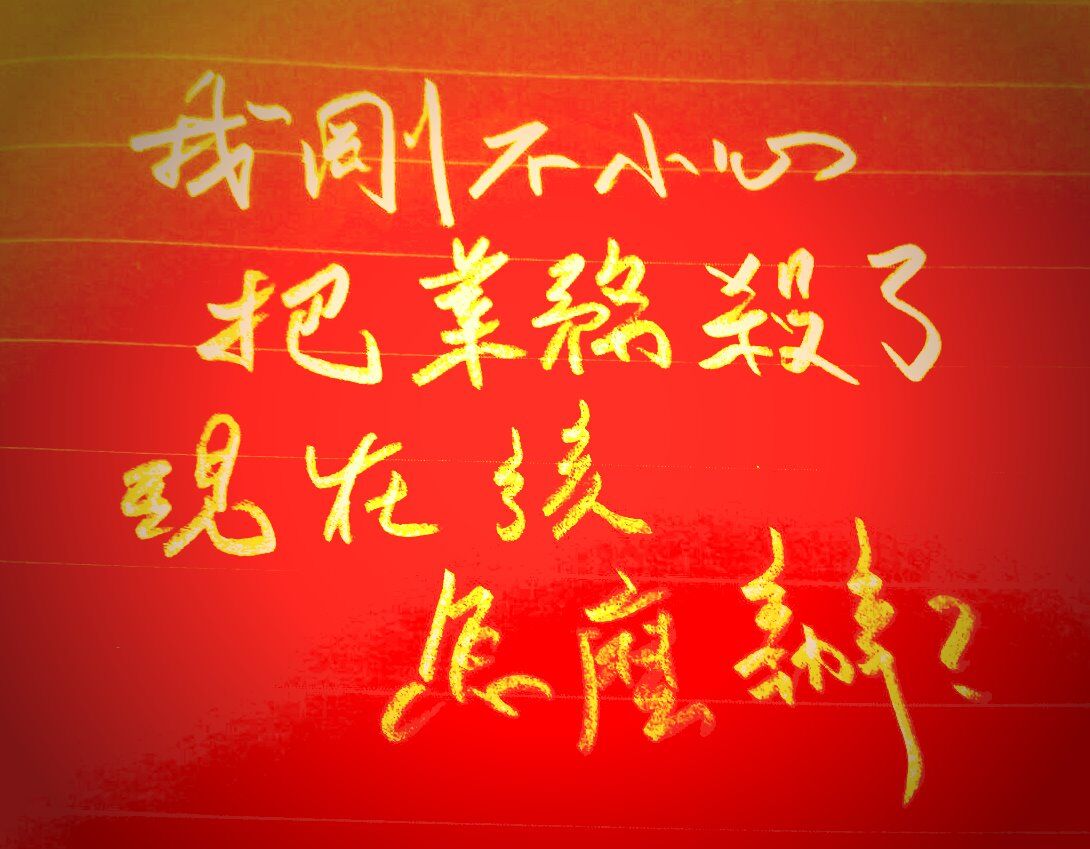 我剛不小心
把業務殺了
現在該
怎麼辦?